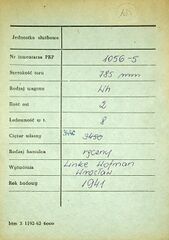 Jednostka służbowa
Nr inwentarza PKP 1056-5
Szerokość toru 785 mm
Rodzaj wagonu Wh
Ilość osi 2
Ładowność w t. 8
Ciężar własny 3490
Rodzaj hamulca ręczny
Wytwórnia Linke Hofman
Wrocław
Rok budowy 1941